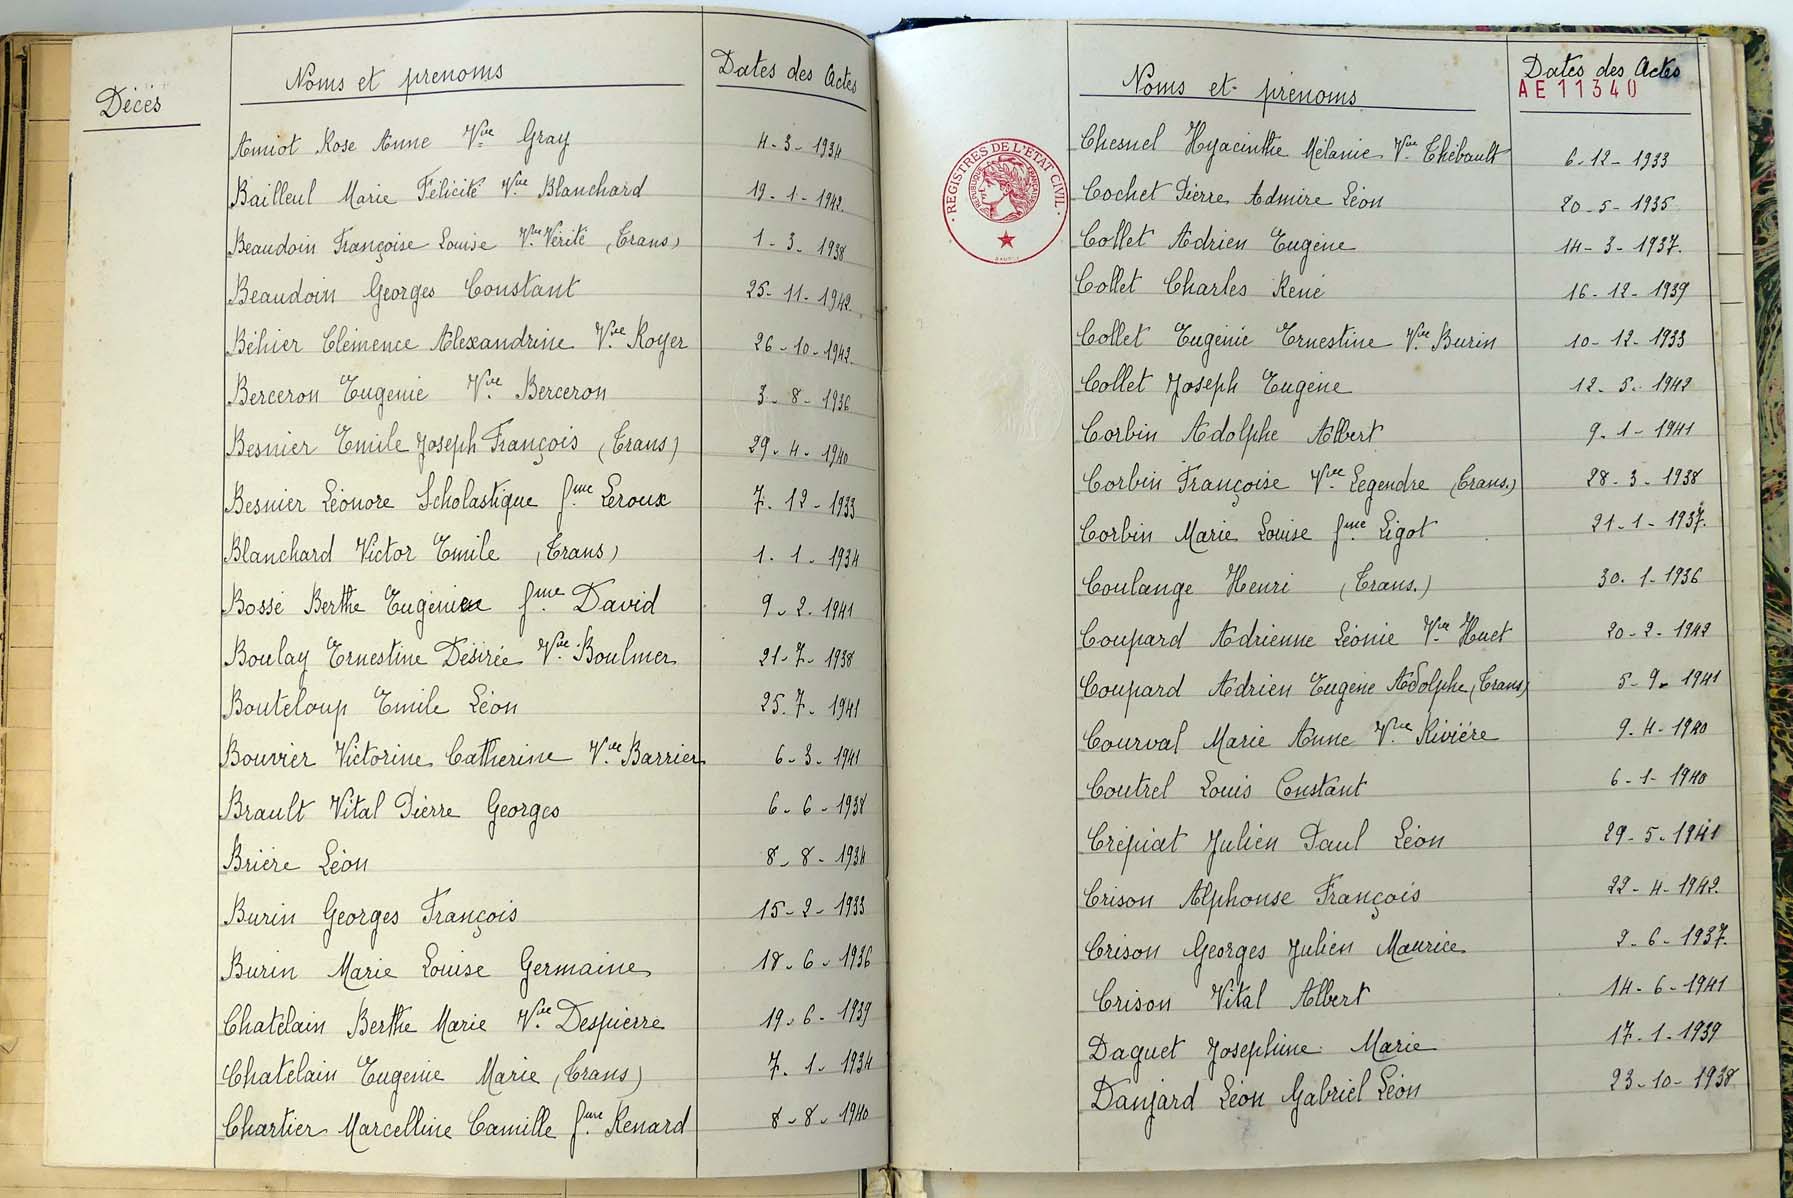 Décès
Noms et prénoms
Dates des Actes
Amiot Rose Anne Vve Gray 4-3-1934
Bailleul Marie Félicité Vve Blanchard 19-1-1942
Beaudoin Françoise Louise Vve Vérité (Trans) 1-3-1938
Beaudoin Georges Constant 25-11-1942
Béhier Clémence Alexandrine Vve Royer 26-10-1942
Berceron Eugénie Vve Berceron 3-8-1936
Besnier Emile Joseph François (Trans) 29-4-1940
Besnier Léonore Scholastique fme Leroux 7-12-1933
Blanchard Victor Emile (Trans) 1-1-1934
Bossé Berthe Eugénie fme David 9-2-1941
Boulay Ernestine Désirée Vve Boulmer 21-7-1938
Bouteloup Emile Léon 25-7-1941
Bouvier Victorine Catherine Vve Barrier 6-3-1941
Brault Vital Pierre Georges 6-6-1938
Brière Léon 8-8-1934
Burin Georges François 15-2-1933
Burin Marie Louise Germaine 18-6-1936
Chatelain Berthe Marie Vve Despierre 19-6-1939
Chatelain Eugénie Marie (Trans) 7-1-1934
Chartier Marcelline Camille fme Renard 8-8-1940
Noms et prénoms
Dates des Actes
AE11340
REGISTRES DE L'ETAT CIVIL
REPUBLIQUE FRANÇAISE
Chesnel Hyacinthe Mélanie Vve Thébault 6-12-1933
Cochet Pierre Admire Léon 20-5-1935
Collet Adrien Eugène 14-3-1937
Collet Charles René 16-12-1939
Collet Eugénie Ernestine Vve Burin 10-12-1933
Collet Joseph Eugène 12-5-1942
Corbin Adolphe Albert 9-1-1941
Corbin Françoise Vve Legendre (Trans.) 28-3-1938
Corbin Marie Louise fme Ligot 21-1-1937
Coulange Henri (Trans.) 30-1-1936
Coupard Adrienne Léonie Vve Huet 20-2-1942
Coupard Adrien Eugène Adolphe (Trans) 5-9-1941
Courval Marie Anne Vve Rivière 9-4-1940
Coutrel Louis Constant 6-1-1940
Crépiat Julien Paul Léon 29-5-1941
Crison Alphonse François 22-4-1942
Crison Georges Julien Maurice 2-6-1937
Crison Vital Albert 14-6-1941
Daguet Joséphine Marie 17-1-1939
Danjard Léon Gabriel Léon 23-10-1938